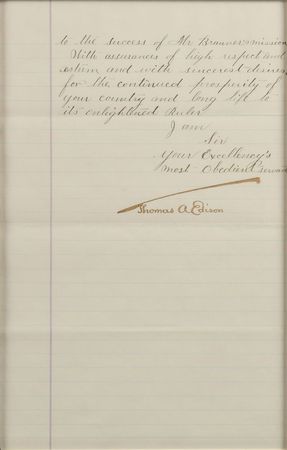 to the success of Mr Branner's mission
With assurances of high respect and
esteem and with sincerest desires
for the continued prosperity of
your country and long life to
its enlightened Ruler
I am
Sir
Your Excellency's
most Obedient servant
Thomas A Edison